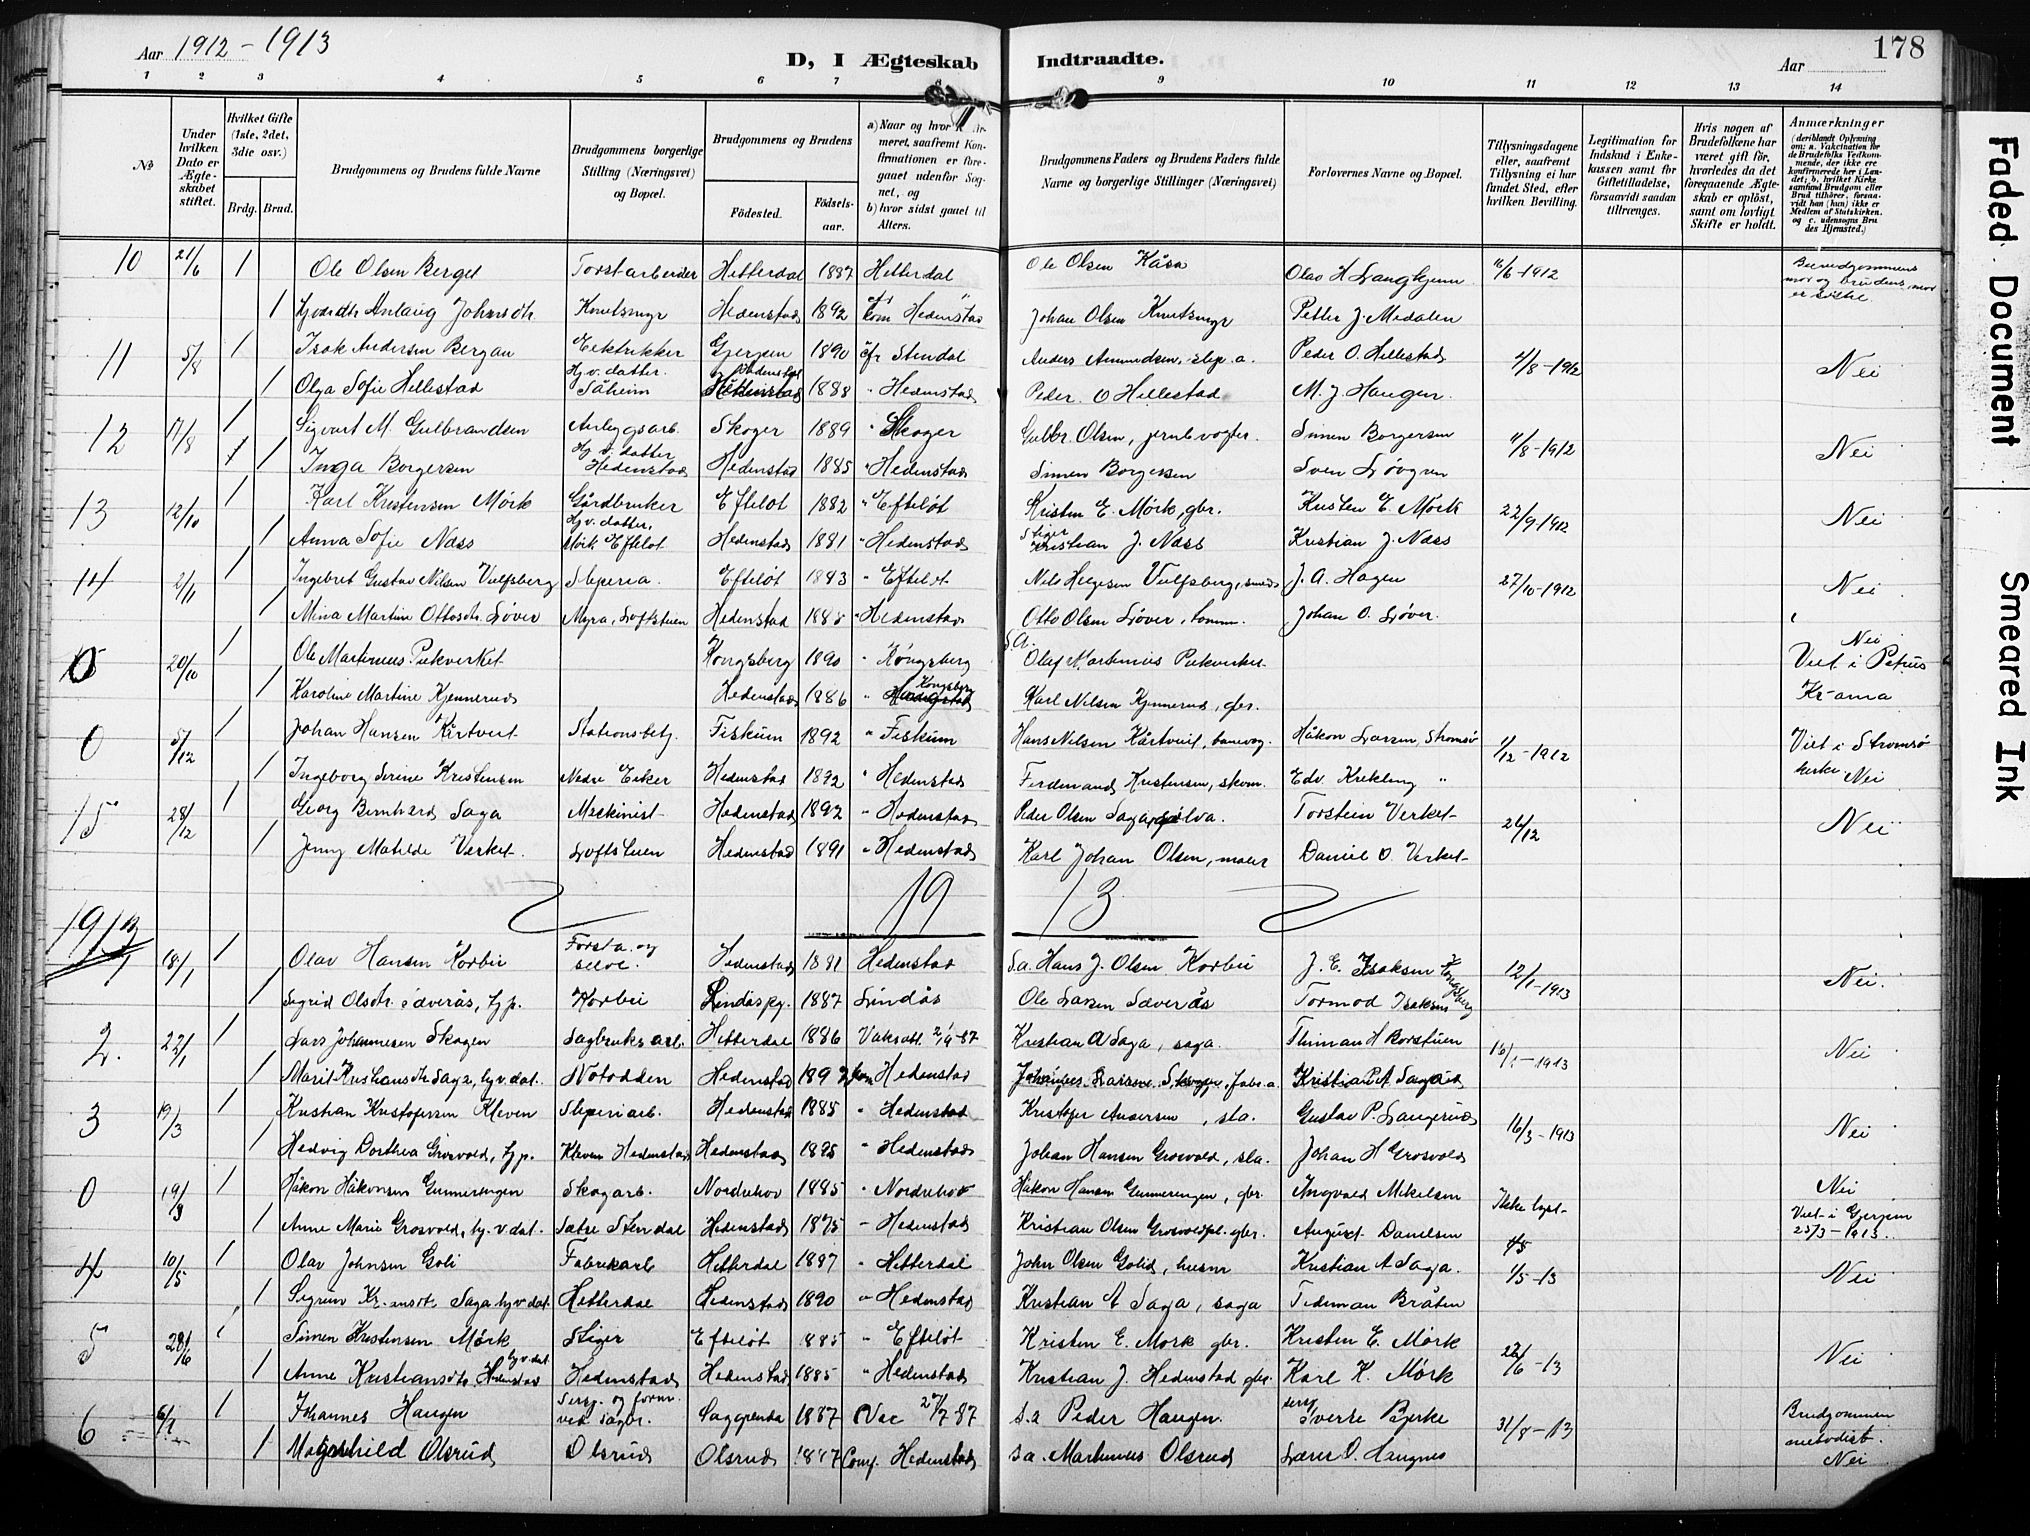 Aar 1912 - 1913
D, I Ægteskab Indtraadte.
178
Aar
1 2 3 4 5 6 7 8 9 10 11 12 13 14
No
Under hvilken Dato er Ægteskabet stiftet.
Hvilket Gifte (1ste, 2det, 3die osv.)
Brdg. Brud.
Brudgommens og Brudens fulde Navne
Brudgommens borgerlige Stilling (Næringsvei) og Bopæl.
Brudgommens og Brudens
Fødested. Fødselsaar.
b) hvor sidst gaaet til Alters.
Brudgommens Faders og Brudens Faders fulde Navne og borgerlige Stillinger (Næringsvei)
Forlovernes Navne og Bopæl.
Tillysningsdagene eller, saafremt Tillysning ei har fundet Sted, efter hvilken Bevilling.
Legitimation for Indskud i Enkekassen samt for Giftetilladelse, forsaavidt saadan tiltrænges.
Hvis nogen af Brudefolkene har været gift før, hvorledes da det foregaaende Ægteskab er opløst, samt om lovligt Skifte er holdt.
Anmærkninger (deriblandt Oplysning om: a. Vakcination for de Brudefolks Vedkommende, der ikke ere konfirmerede her i Landet; b. hvilket Kirkesamfund Brudgom eller Brud tilhører, forsaavidt han (hun) ikke er Medlem af Statskirken. og c. udensogns Brudes Hjemsted.)
10 21/6 1 Ole Olsen Berget Hitterdal 1887 Hitterdal Ole Olsen Kåsa 16/6-1912 Brudgommens mor og brudens mor er søstre
1 Anlaug Johnsdtr. Knutsmyr Hedenstad 1892 Hedenstad Johan Olsen Knutsmyr Petter J. Medalen
11 5/8 1 Isak Andersen Bergan Gjerpen 1890 Anders Amundsen, slip. a. Peder O. Hellestad 4/8-1912 Nei
1 Olga Sofie Hellestad Hj. v. datter. Såheim Hedenstad 1888 " Hedenstad Peder O Hellestad M. J. Haugen.
12 17/8 1 Sigvart M. Gulbrandsen Anlegsarb. Skoger 1889 " Skoger Gulbr. Olsen, jernb vogter. Simen Borgersen 11/8-1912 Nei
1 Inga Borgersen Hj. v. datter Hedenstad Hedenstad 1885 " Hedenstad Simen Borgersen Sven Løvgren
13 12/10 1 Karl Kristensen Mørk Gårdbruker Efteløt 1882 " Efteløt Kristen E. Mørk, gbr. Kristen E. Mørk 22/9-1912 Nei
1 Anna Sofie Næss Hj v. datter, Mørk Efteløt Hedenstad 1881 " Hedenstad Stiger Kristian J. Næss Kristian J. Næss
14 2/11 1 Ingebret Gustav Nilsen Vulfsberg Sliperia. Efteløt 1883 " Efteløt Nils Helgesen Vulfsberg, smed J. A. Hagen 27/10-1912 Nei
1 Mina Martine Ottosdtr. Løver Myra, Loftstuen Hedenstad 1885 " Hedenstad Otto Olsen Løver, tømm. Johan O. Løver.
0 20/10 1 Ole Martenius Pukverket Kongsberg 1890 " Kongsberg S.a. Olaf Martenius Pukverket Nei Viet i Petrus
1 Karoline Martine Kjennerud Hedenstad 1886 " Kongsberg Karl Nilsen Kjennerud, gbr. Kr-ania
0 5/12 1 Johan Hansen Kårtveit Stationsbetj. Fiskum 1892 " Fiskum Hans Nilsen Kårtveit, banevog. Håkon Larsen, Strømsø 1/12-1912 Viet i Strømsø kirke Nei
1 Ingeborg Serine Kristensen Nedre Eiker Hedenstad 1892 " Hedenstad Ferdinand Kristensen, skom. Edv. Krekling "
15 28/12 1 Georg Bernhard Saga Maskinist Hedenstad 1892 " Hedenstad Peder Olsen Saga Torstein Verket 26/12 Nei
1 Jenny Matilde Verket. Loftstuen Hedenstad 1891 " Hedenstad Karl Johan Olsen, maler Daniel O. Verket
1913 19 13
1 18/1 1 Olav Hansen Korbu Hedenstad 1881 Hedenstad S.a. Hans J. Olsen Korbu J. E. Isaksen Kongsberg 12/1-1913 Nei.
1 Sigrid Olsdtr. Sæverås, hj p. Korbu Lindås pg. 1887 Lindås Ole Larsen Sæverås Tormod Isaksen
2. 22/1 1 Lars Johannesen Skogen Sagbruksarb. Hitterdal 1886 Kristian A Saga, saga. 16/1-1913 Nei
1 Marit Kristiansdtr Saga, hj v. dat. Notodden Hedenstad 1892 Hedenstad Kristian A Saga
3 19/3 1 Kristian Kristofersen Kleven Sliperiarb. Hedenstad 1885 " Hedenstad Kristofer Andersen, sla. Gustav P. Langerud 16/3-1913 Nei
1 Hedvig Dorthea Grosvold, hj p. Kleven Hedenstad Hedenstad 1895 " Hedenstad Johan Hansen Grosvold, sla. Johan H Grosvold
0 19/3 1 Håkon Håkonsen Gunnerengen Skogarb. Norderhov 1885 " Norderhov Håkon Hansen Gunnerengen, gbr. Ingvald Mikelsen Ikke lyst Nei
1 Anne Marie Grosvold, hj. v. dat. Sætre Stendal Hedenstad 1875 " Hedenstad Kristian Olsen Grosvoldpl. gbr. August Danielsen Viet i Gjerpen 25/3-1913.
4 10/5 1 Olav Johnsen Goli Fabrikarb Hitterdal 1887 " Hitterdal John Olsen Golid, husm Kristian A Saga. 1/5-13 Nei
1 Sigrun Kr.ansdt. Saga hj v dat. Hitterdal Hedenstad 1890 " Hedenstad Kristian A Saga, saga Tideman Bråten
5 28/6 1 Simen Kristensen Mørk Stiger Efteløt 1885 " Efteløt Kristen E. Mørk gbr. Kristen E. Mørk 22/6-13 Nei
1 Anne Kristiansdtr. Hedenstad hj. v. dat Hedenstad Hedenstad 1885 " Hedenstad Kristian J. Hedenstad gbr. Karl K. Mørk
6 6/7 1 Johannes Haugen Saggrenda 1887 Vac 27/7 87 s.a Peder Haugen. Sverre Bjerke 31/8-13 Brudgommen metodist.
1 Magnhild Olsrud Olsrud Olsrud 1887 Conf. Hedenstad s a. Martinius Olsrud Lærer O. Haugnes Nei
Faded Document
Smeared Ink